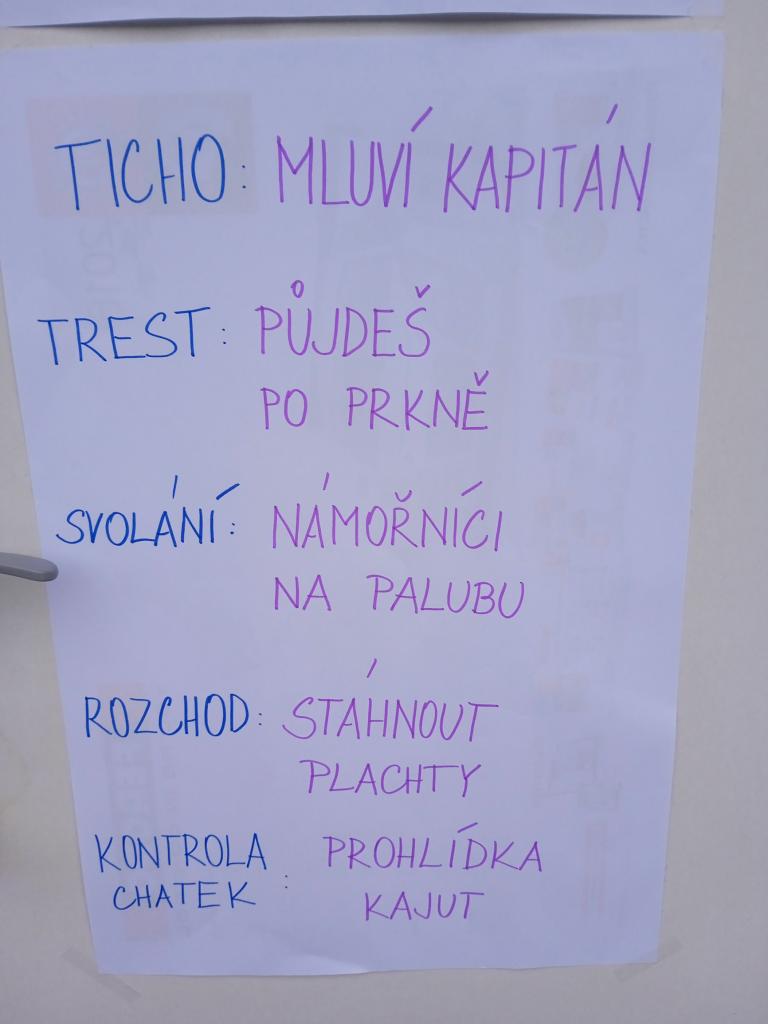 TICHO: MLUVÍ KAPITÁN
TREST: PŮJDEŠ
PO PRKNĚ
SVOLÁNÍ: NÁMOŘNÍCI
NA PALUBU
ROZCHOD: STÁHNOUT
PLACHTY
KONTROLA CHATEK: PROHLÍDKA
KAJUT